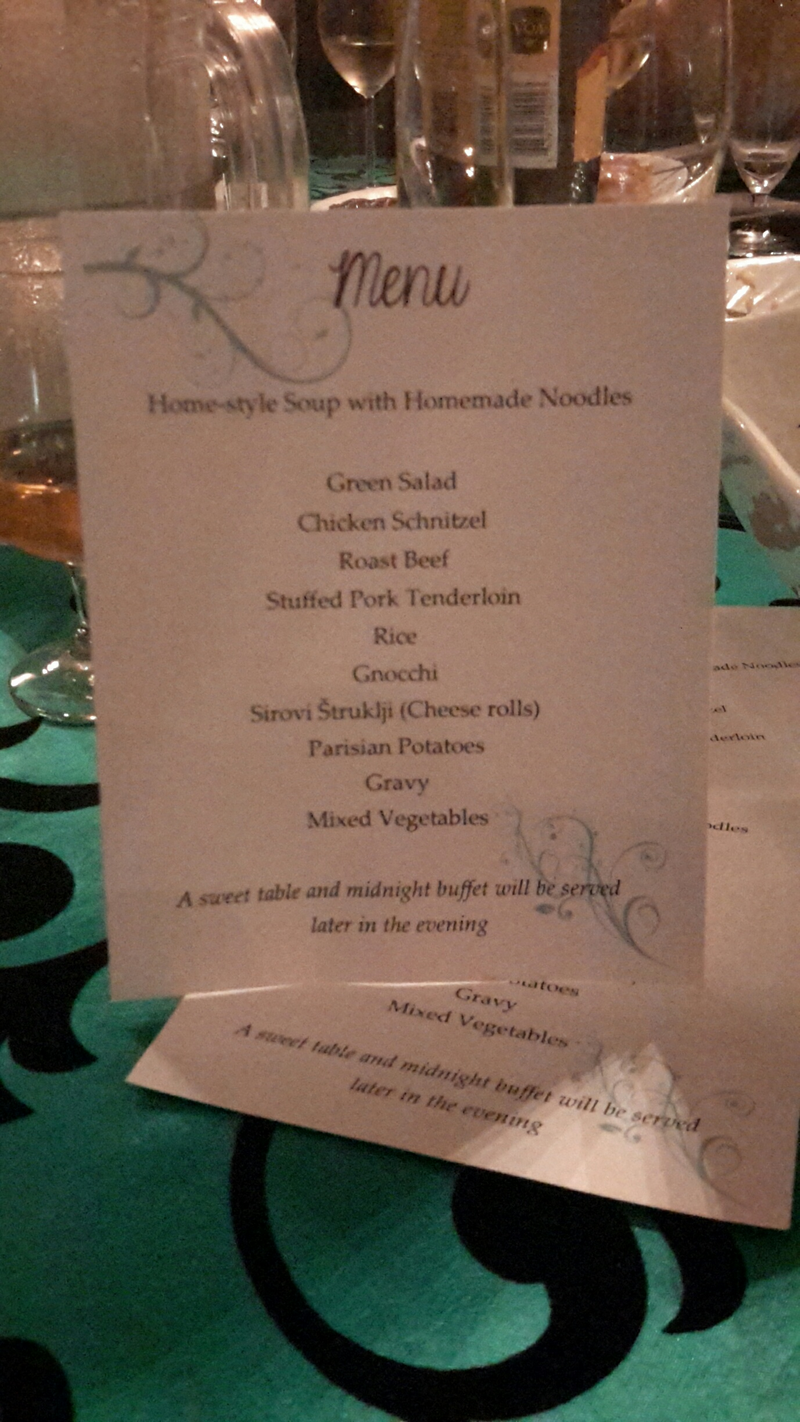 VQA
Menu
Home-style Soup with Homemade Noodles
Green Salad
Chicken Schnitzel
Roast Beef
Stuffed Pork Tenderloin
Rice
Gnocchi
Sirovi Štruklji (Cheese rolls)
Parisian Potatoes
Gravy
Mixed Vegetables
A sweet table and midnight buffet will be served
later in the evening
ade Noodles
el
derloin
odles
atoes
Gravy
Mixed Vegetables
A sweet table and midnight buffet will be served
later in the evening